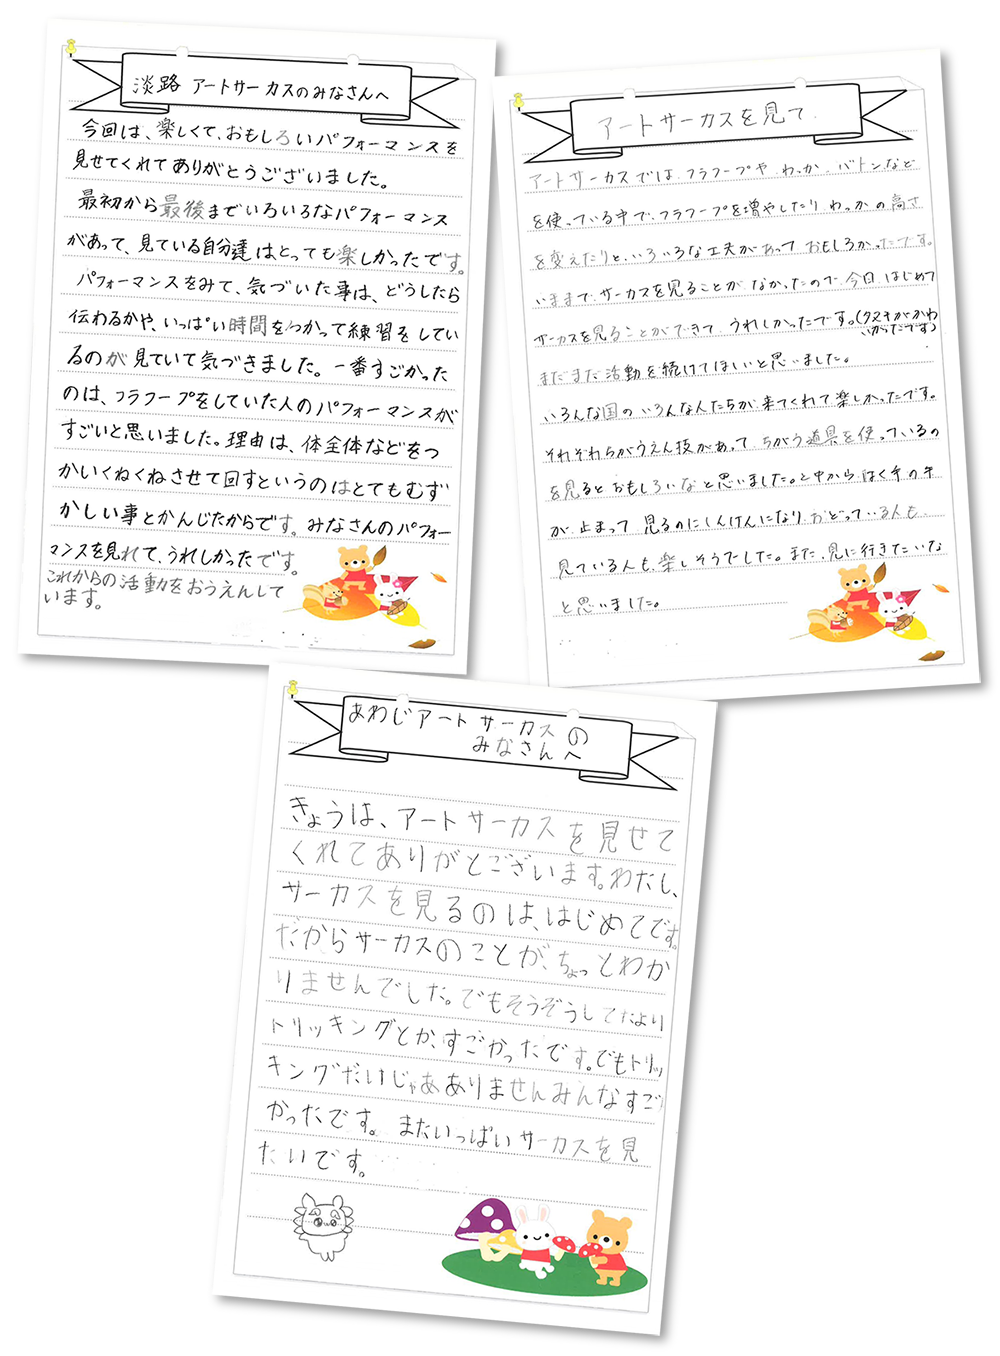 淡路 アートサーカスのみなさんへ
今回は、楽しくて、おもしろいパフォーマンスを
見せてくれてありがとうございました。
最初から最後までいろいろなパフォーマンス
があって、見ている自分達はとっても楽しかったです。
パフォーマンスをみて、気づいた事は、どうしたら
伝わるかや、いっぱい時間をつかって練習をしてい
るのが見ていて気づきました。一番すごかった
のは、フラフープをしていた人のパフォーマンスが
すごいと思いました。理由は、体全体などをつ
かいくねくねさせて回すというのはとてもむず
かしい事とかんじたからです。みなさんのパフォー
マンスを見れて、うれしかったです。
これからの活動をおうえんして
います。
アートサーカスを見て
アートサーカスでは、フラフープや、わっか、バトンなど
を使っている中で、フラフープを増やしたり、わっかの高さ
を変えたりと、いろいろな工夫があっておもしろかったです。
いままで、サーカスを見ることが、なかったので、今日、はじめて
サーカスを見ることができて、うれしかったです。(タヌキがかわ
いかったです)
まだまだ活動を続けてほしいと思いました。
いろんな国のいろんな人たちが来てくれて楽しかったです。
それぞれちがうえん技があって、ちがう道具を使っているの
を見るとおもしろいなと思いました。と中から、はく手の手
が止まって見るのにしんけんになり、おどっている人も、
見ている人も、楽しそうでした。また、見に行きたいな
と思いました。
あわじアートサーカスの
みなさんへ
きょうは、アートサーカスを見せて
くれてありがとございます。わたし、
サーカスを見るのは、はじめてです。
だからサーカスのことが、ちょっとわか
りませんでした。でもそうぞうしてたより
トリッキングとか、すごかったです。でもトリッ
キングだけじゃああありませんみんなすご
かったです。またいっぱいサーカスを見
たいです。